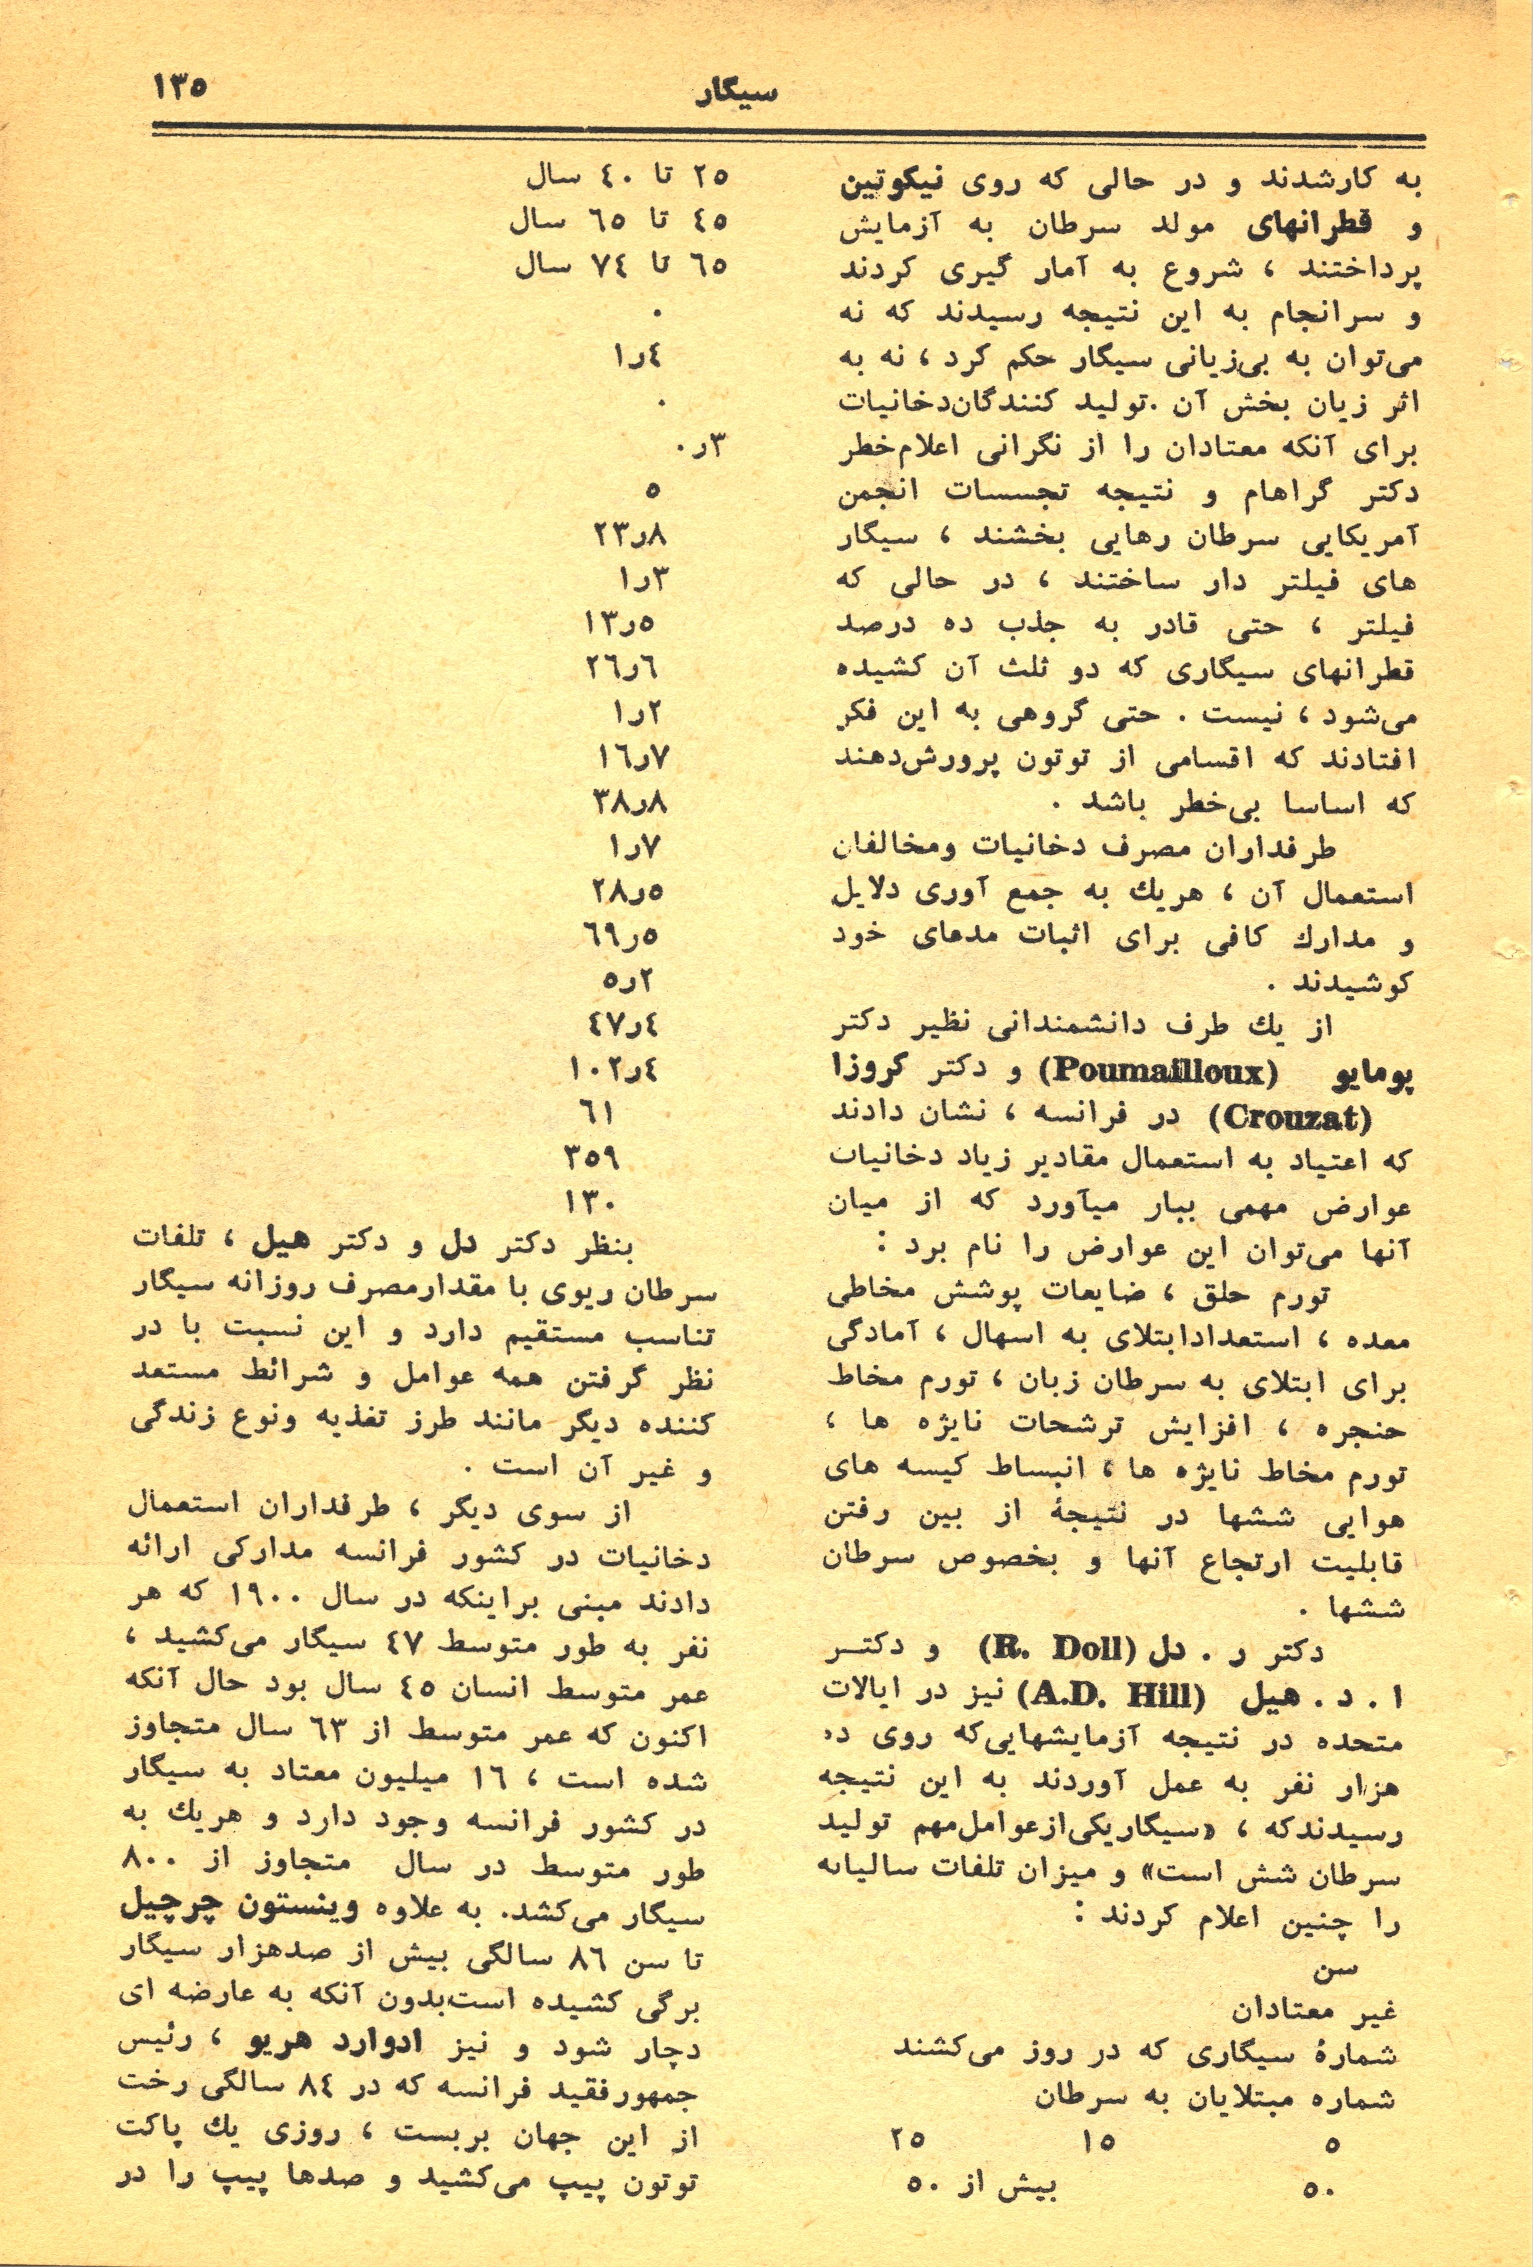 سیگار
۱۳۵
به کارشدند و در حالی که روی نیکوتین
و قطرانهای مولد سرطان به آزمایش
پرداختند ، شروع به آمار گیری کردند
و سرانجام به این نتیجه رسیدند که نه
می‌توان به بی‌زیانی سیگار حکم کرد ، نه به
اثر زیان بخش آن .تولید کنندگان‌دخانیات
برای آنکه معتادان را از نگرانی اعلام‌خطر
دکتر گراهام و نتیجه تجسسات انجمن
آمریکایی سرطان رهایی بخشند ، سیگار
های فیلتر دار ساختند ، در حالی که
فیلتر ، حتی قادر به جذب ده درصد
قطرانهای سیگاری که دو ثلث آن کشیده
می‌شود ، نیست . حتی گروهی به این فکر
افتادند که اقسامی از توتون پرورش‌دهند
که اساسا بی‌خطر باشد .
طرفداران مصرف دخانیات ومخالفان
استعمال آن ، هریك به جمع آوری دلایل
و مدارك کافی برای اثبات مدعای خود
کوشیدند .
از یك طرف دانشمندانی نظیر دکتر
پومایو (Poumailloux) و دکتر کروزا
(Crouzat) در فرانسه ، نشان دادند
که اعتیاد به استعمال مقادیر زیاد دخانیات
عوارض مهمی ببار میآورد که از میان
آنها می‌توان این عوارض را نام برد :
تورم حلق ، ضایعات پوشش مخاطی
معده ، استعدادابتلای به اسهال ، آمادگی
برای ابتلای به سرطان زبان ، تورم مخاط
حنجره ، افزایش ترشحات نایژه ها ،
تورم مخاط نایژه ها ، انبساط کیسه های
هوایی ششها در نتیجهٔ از بین رفتن
قابلیت ارتجاع آنها و بخصوص سرطان
ششها .
دکتر ر . دل (R. Doll) و دکتـــر
ا . د . هیل (A.D. Hill) نیز در ایالات
متحده در نتیجه آزمایشهایی‌که روی ده
هزار نفر به عمل آوردند به این نتیجه
رسیدندکه ، «سیگاریکی‌ازعوامل‌مهم تولید
سرطان شش است» و میزان تلفات سالیانه
را چنین اعلام کردند :
سن
غیر معتادان
شمارهٔ سیگاری که در روز می‌کشند
شماره مبتلایان به سرطان
٥ ١٥ ٢٥
٥٠ بیش از ٥٠
٢٥ تا ٤٠ سال
٤٥ تا ٦٥ سال
٦٥ تا ٧٤ سال
٠
٤ر١
٠
٣ر٠
٥
٨ر٢٣
٣ر١
٥ر١٣
٦ر٢٦
٢ر١
٧ر١٦
٨ر٣٨
٧ر١
٥ر٢٨
٥ر٦٩
٢ر٥
٤ر٤٧
٤ر١٠٢
٦١
٣٥٩
١٣٠
بنظر دکتر دل و دکتر هیل ، تلفات
سرطان ریوی با مقدارمصرف روزانه سیگار
تناسب مستقیم دارد و این نسبت با در
نظر گرفتن همه عوامل و شرائط مستعد
کننده دیگر مانند طرز تغذیه ونوع زندگی
و غیر آن است .
از سوی دیگر ، طرفداران استعمال
دخانیات در کشور فرانسه مدارکی ارائه
دادند مبنی براینکه در سال ١٩٠٠ که هر
نفر به طور متوسط ٤٧ سیگار می‌کشید ،
عمر متوسط انسان ٤٥ سال بود حال آنکه
اکنون که عمر متوسط از ٦٣ سال متجاوز
شده است ، ١٦ میلیون معتاد به سیگار
در کشور فرانسه وجود دارد و هریك به
طور متوسط در سال متجاوز از ٨٠٠
سیگار می‌کشد. به علاوه وینستون چرچیل
تا سن ٨٦ سالگی بیش از صدهزار سیگار
برگی کشیده است‌بدون آنکه به عارضه ای
دچار شود و نیز ادوارد هریو ، رئیس
جمهورفقید فرانسه که در ٨٤ سالگی رخت
از این جهان بربست ، روزی یك پاکت
توتون پیپ می‌کشید و صدها پیپ را در